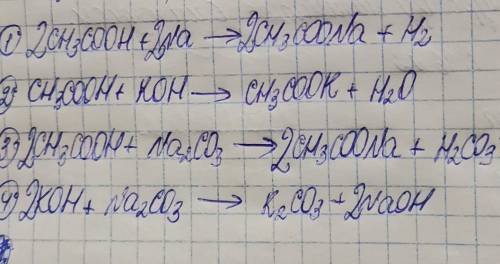 1) 2CH3COOH + 2Na → 2CH3COONa + H2
2) CH3COOH + KOH → CH3COOK + H2O
3) 2CH3COOH + Na2CO3 → 2CH3COONa + H2CO3
4) 2KOH + Na2CO3 → K2CO3 + 2NaOH